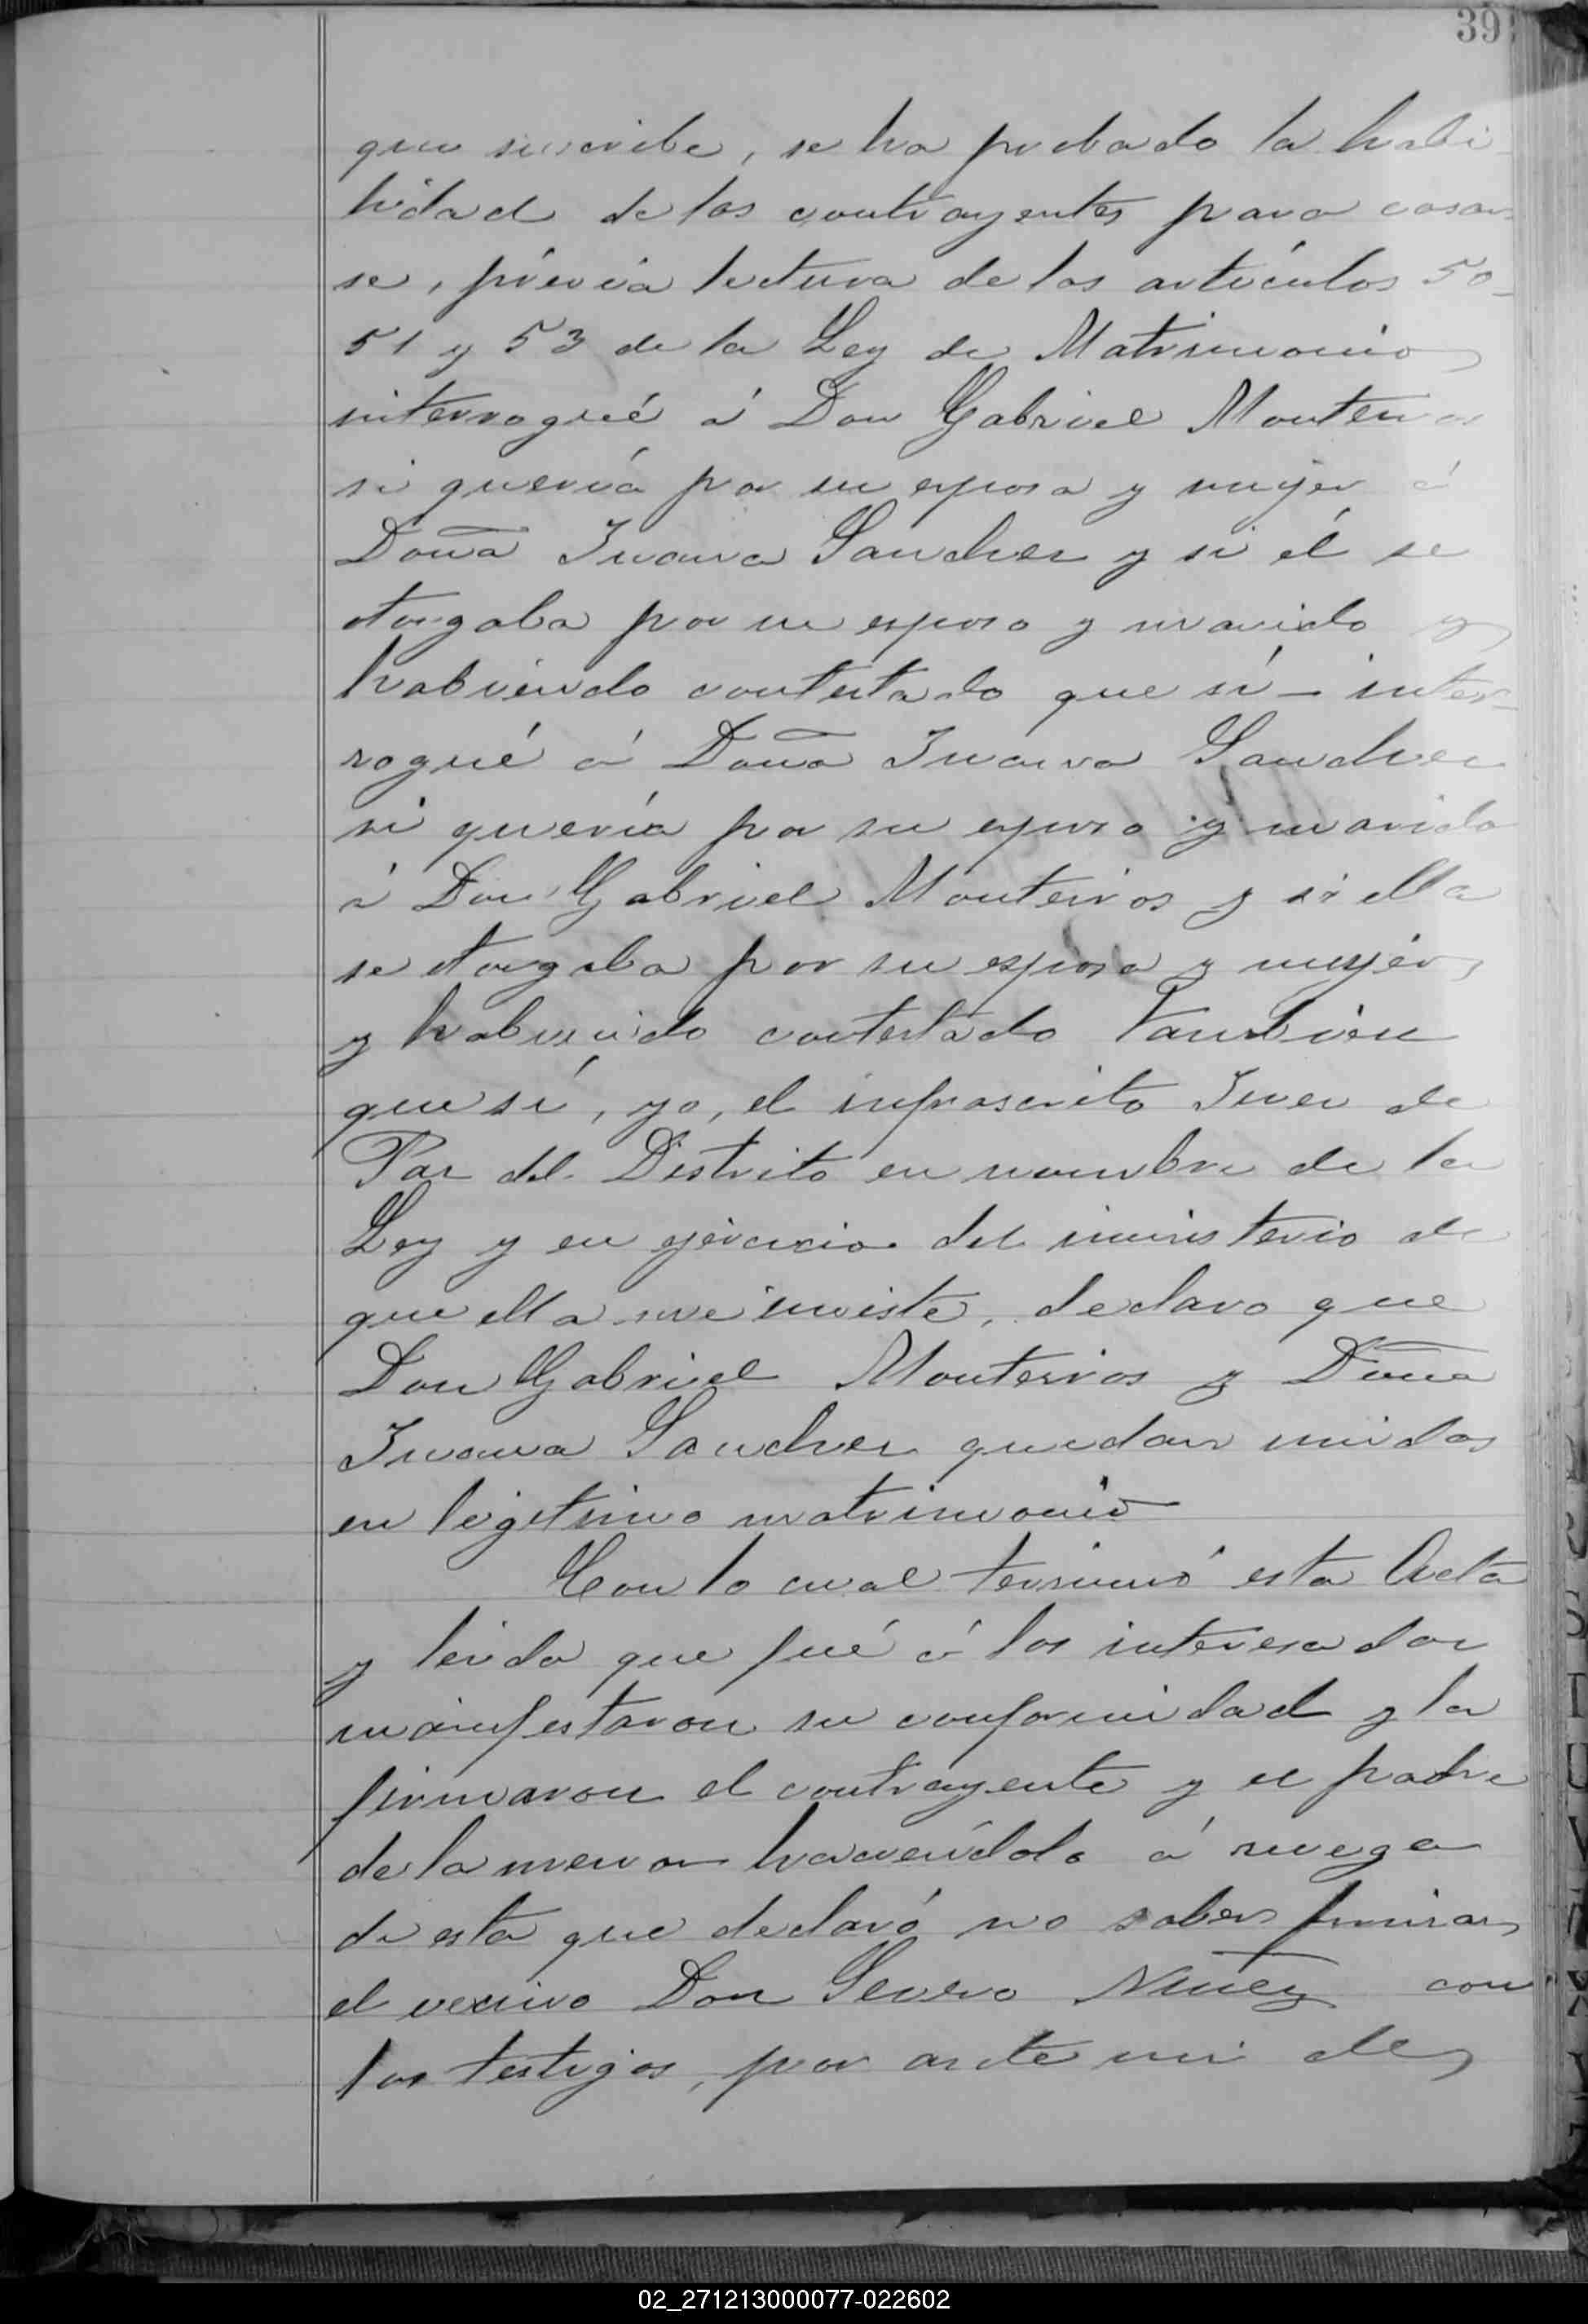 39
que suscribe, se ha probado la habi-
lidad de los contrayentes para casar-
se, prévia lectura de los artículos 50-
51 y 53 de la Ley de Matrimonio
interrogué á Don Gabriel Monteiros
si quería por su esposa y mujer á
Doña Juana Sanchez y si él se
otorgaba por su esposo y marido y
habiendo contestado que sí — inter-
rogué á Doña Juana Sanchez
si quería por su esposo y marido
á Don Gabriel Monteiros y si ella
se otorgaba por su esposa y mujer,
y habiendo contestado tambien
que sí, yo, el infrascrito Juez de
Paz del Distrito en nombre de la
Ley y en ejercicio del ministerio de
que ella me inviste, declaro que
Don Gabriel Monteiros y Doña
Juana Sanchez quedan unidos
en legitimo matrimonio
Con lo cual terminó esta Acta
y leida que fué á los interesados
manifestaron su conformidad y la
firmaron el contrayente y el padre
de la menor haciendolo á ruego
de esta que declaró no saber firmar,
el vecino Don Severo Nuñez con
los testigos, por ante mi de
02_271213000077-022602